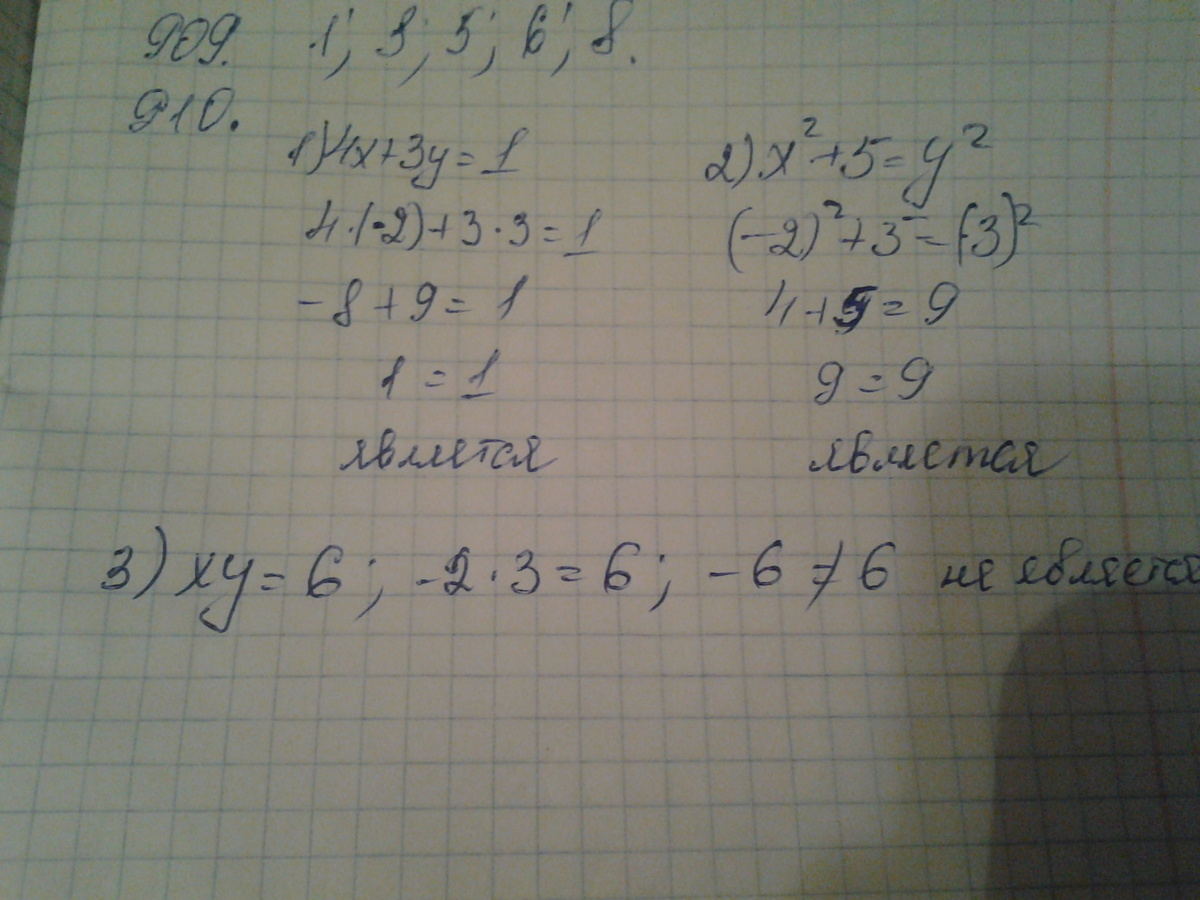 909. 1; 3; 5; 6; 8.
910.
1) 4x+3y=1
4·(-2)+3·3=1
-8+9=1
1=1
является
2) x²+5=y²
(-2)²+5=(3)²
4+5=9
9=9
является
3) xy=6; -2·3=6; -6≠6 не является